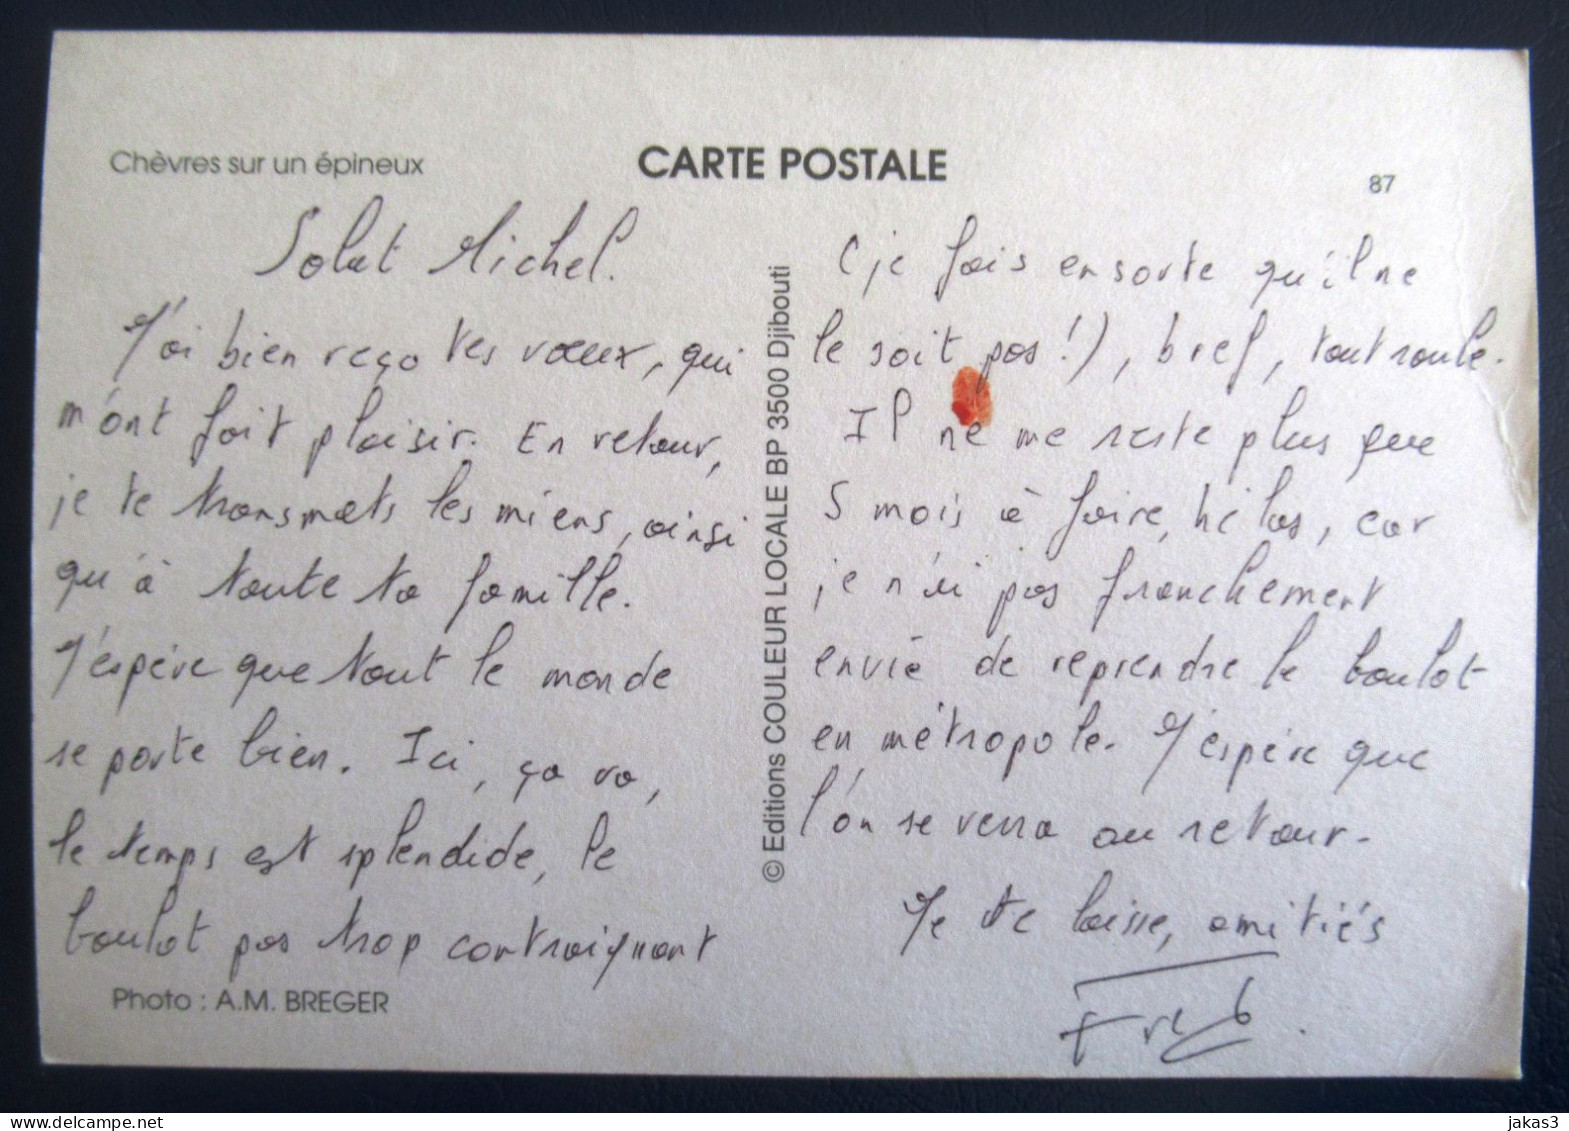 Chèvres sur un épineux
CARTE POSTALE
87
Salut Michel.
J'ai bien reçu tes vœux, qui
m'ont fait plaisir. En retour,
je te transmets les miens, ainsi
qu'à toute ta famille.
J'espère que tout le monde
se porte bien. Ici, ça va,
le temps est splendide, le
boulot pas trop contraignant
Photo : A.M. BREGER
© Editions COULEUR LOCALE BP 3500 Djibouti
(je fais en sorte qu'il ne
le soit pas !), bref, tout roule.
Il ne me reste plus que
5 mois à faire, hélas, car
je n'ai pas franchement
envie de reprendre le boulot
en métropole. J'espère que
l'on se verra au retour.
Je te laisse, amitiés
www.delcampe.net
jakas3